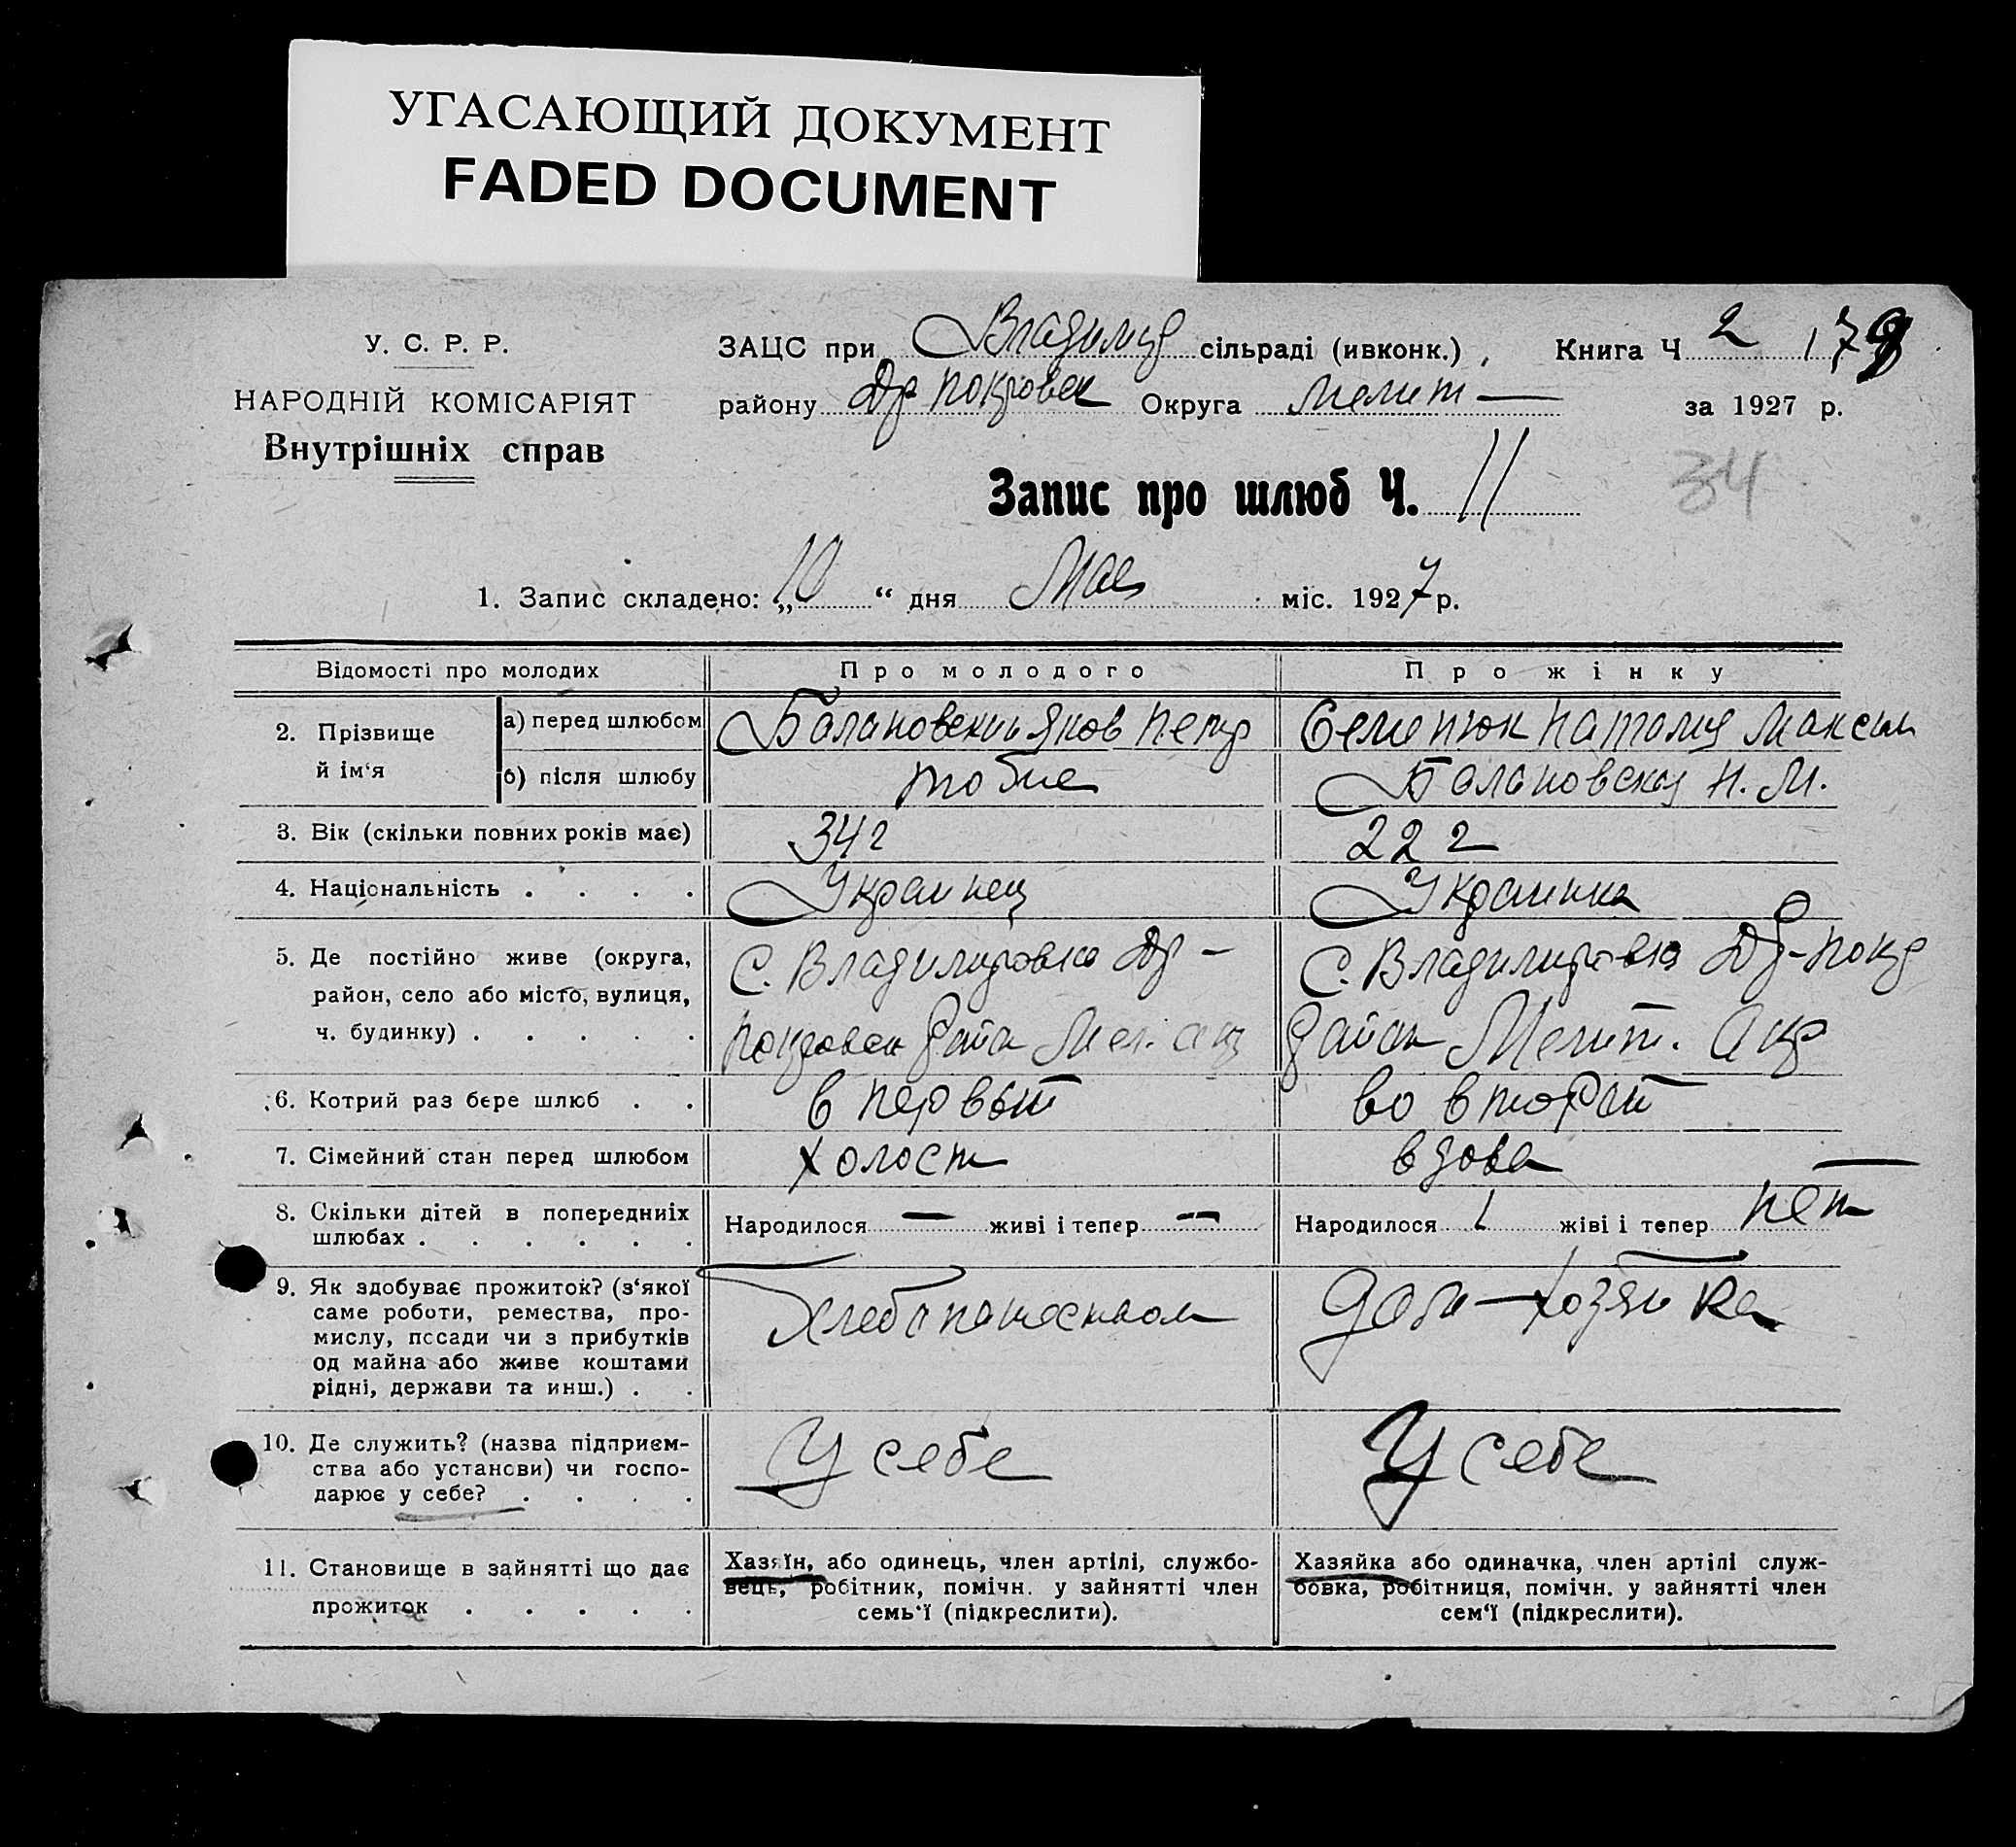 УГАСАЮЩИЙ ДОКУМЕНТ
FADED DOCUMENT
У. С. Р. Р.
НАРОДНІЙ КОМІСАРІЯТ
Внутрішніх справ
ЗАЦС при Владимир сільраді (ивконк.), Книга Ч 2
району Др Покровск Округа Мелит — за 1927 р.
34
Запис про шлюб Ч. 11
1. Запис складено: „10“ дня Мая міс. 1927 р.
Відомості про молодих
Про молодого
Про жінку
2. Прізвище й ім‘я
а) перед шлюбом
Балановский Яков Петр
Семенюк Наталия Максим
б) після шлюбу
тоже
Балановская Н. М.
3. Вік (скільки повних років має)
34 г
22 г
4. Національність . . . .
Украинец
Украинка
5. Де постійно живе (округа,
район, село або місто, вулиця,
ч. будинку) . . . . .
С. Владимировка Др -
Покровск Райа Мел. окр
С. Владимировка Др-Покр
Район Мелит. Окр
6. Котрий раз бере шлюб . .
в первый
во второй
7. Сімейний стан перед шлюбом
холост
вдова —
8. Скільки дітей в попередниіх
шлюбах . . . . . .
Народилося — живі і тепер —
Народилося 1 жіві і тепер нет
9. Як здобуває прожиток? (з‘якої
саме роботи, ремества, про-
мислу, посади чи з прибутків
од майна або живе коштами
рідні, держави та инш.) . .
Хлебопашеством
Дом-хозяйка
10. Де служить? (назва підприєм-
ства або установи) чи госпо-
дарює у себе? . . . .
У себе
У себе
11. Становище в зайнятті що дає
прожиток . . . . .
Хазяїн, або одинець, член артілі, службо-
вець, робітник, помічн. у зайнятті член
семь‘ї (підкреслити).
Хазяйка або одиначка, член артілі служ-
бовка, робітниця, помічн. у зайнятті член
сем‘ї (підкреслити).